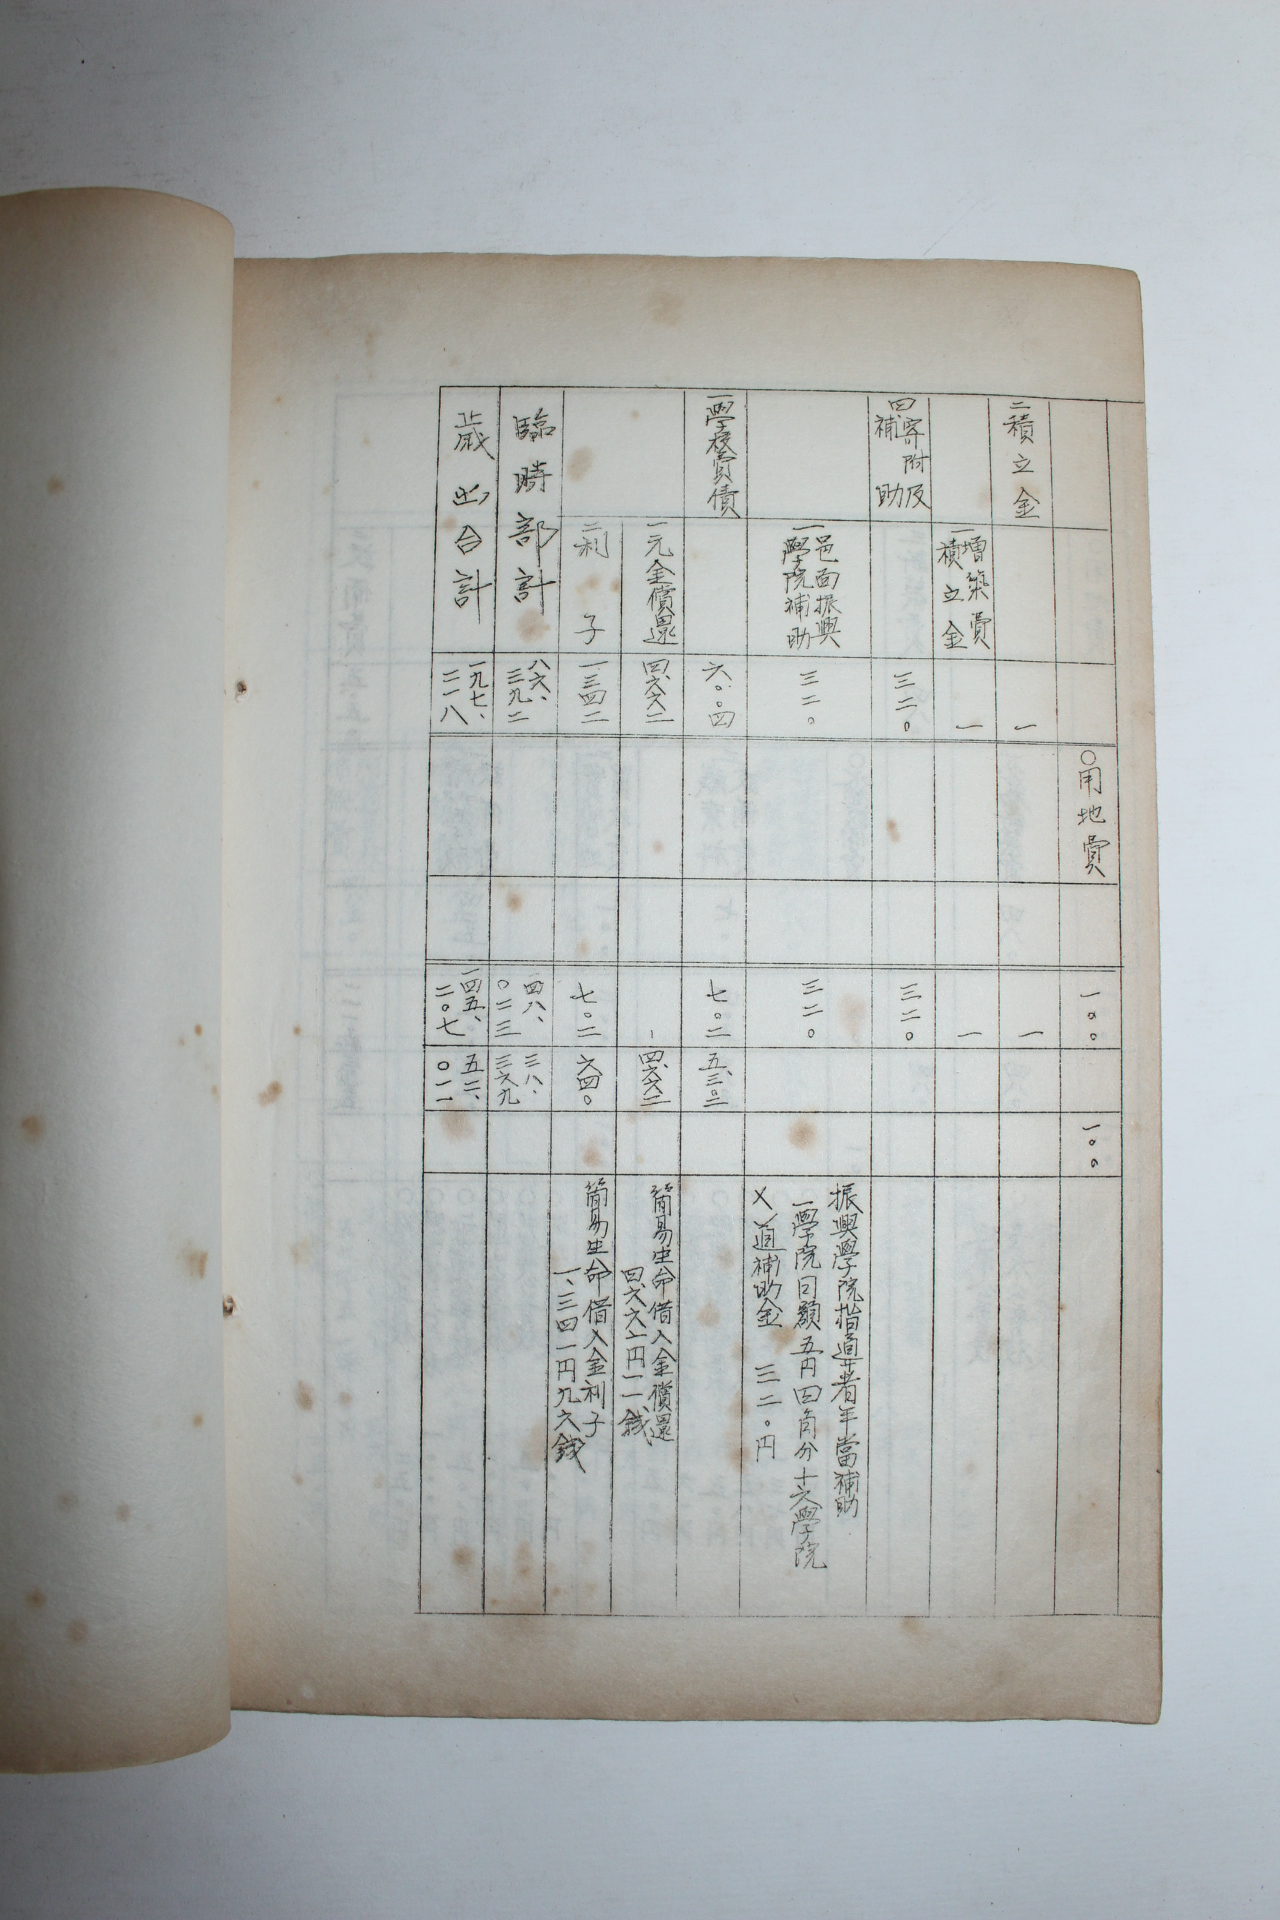 〇用地費
一〇〇
一〇〇
二積立金
一
一
増築費
積立金
一
一
四、寄附及
補助
三二〇
三二〇
一邑面振興
學院補助
三二〇
三二〇
振興學院指導者年當補助
一學院月額五円四角分十六學院
乂道補助金 三二〇円
一學校費債
六〇〇四
七〇二
五、三〇二
一元金償還
四、六六二
四、六六二
簡易生命借入金償還
四、六六一円一一錢
二利子
一三四二
七〇二
六四〇
簡易生命借入金利子
一、三四一円九六錢
臨時部計
八六、
三九二
四八、
〇二三
三八、
三六九
歳出合計
一九七、
二一八
一四五、
二〇七
五二、
〇一一